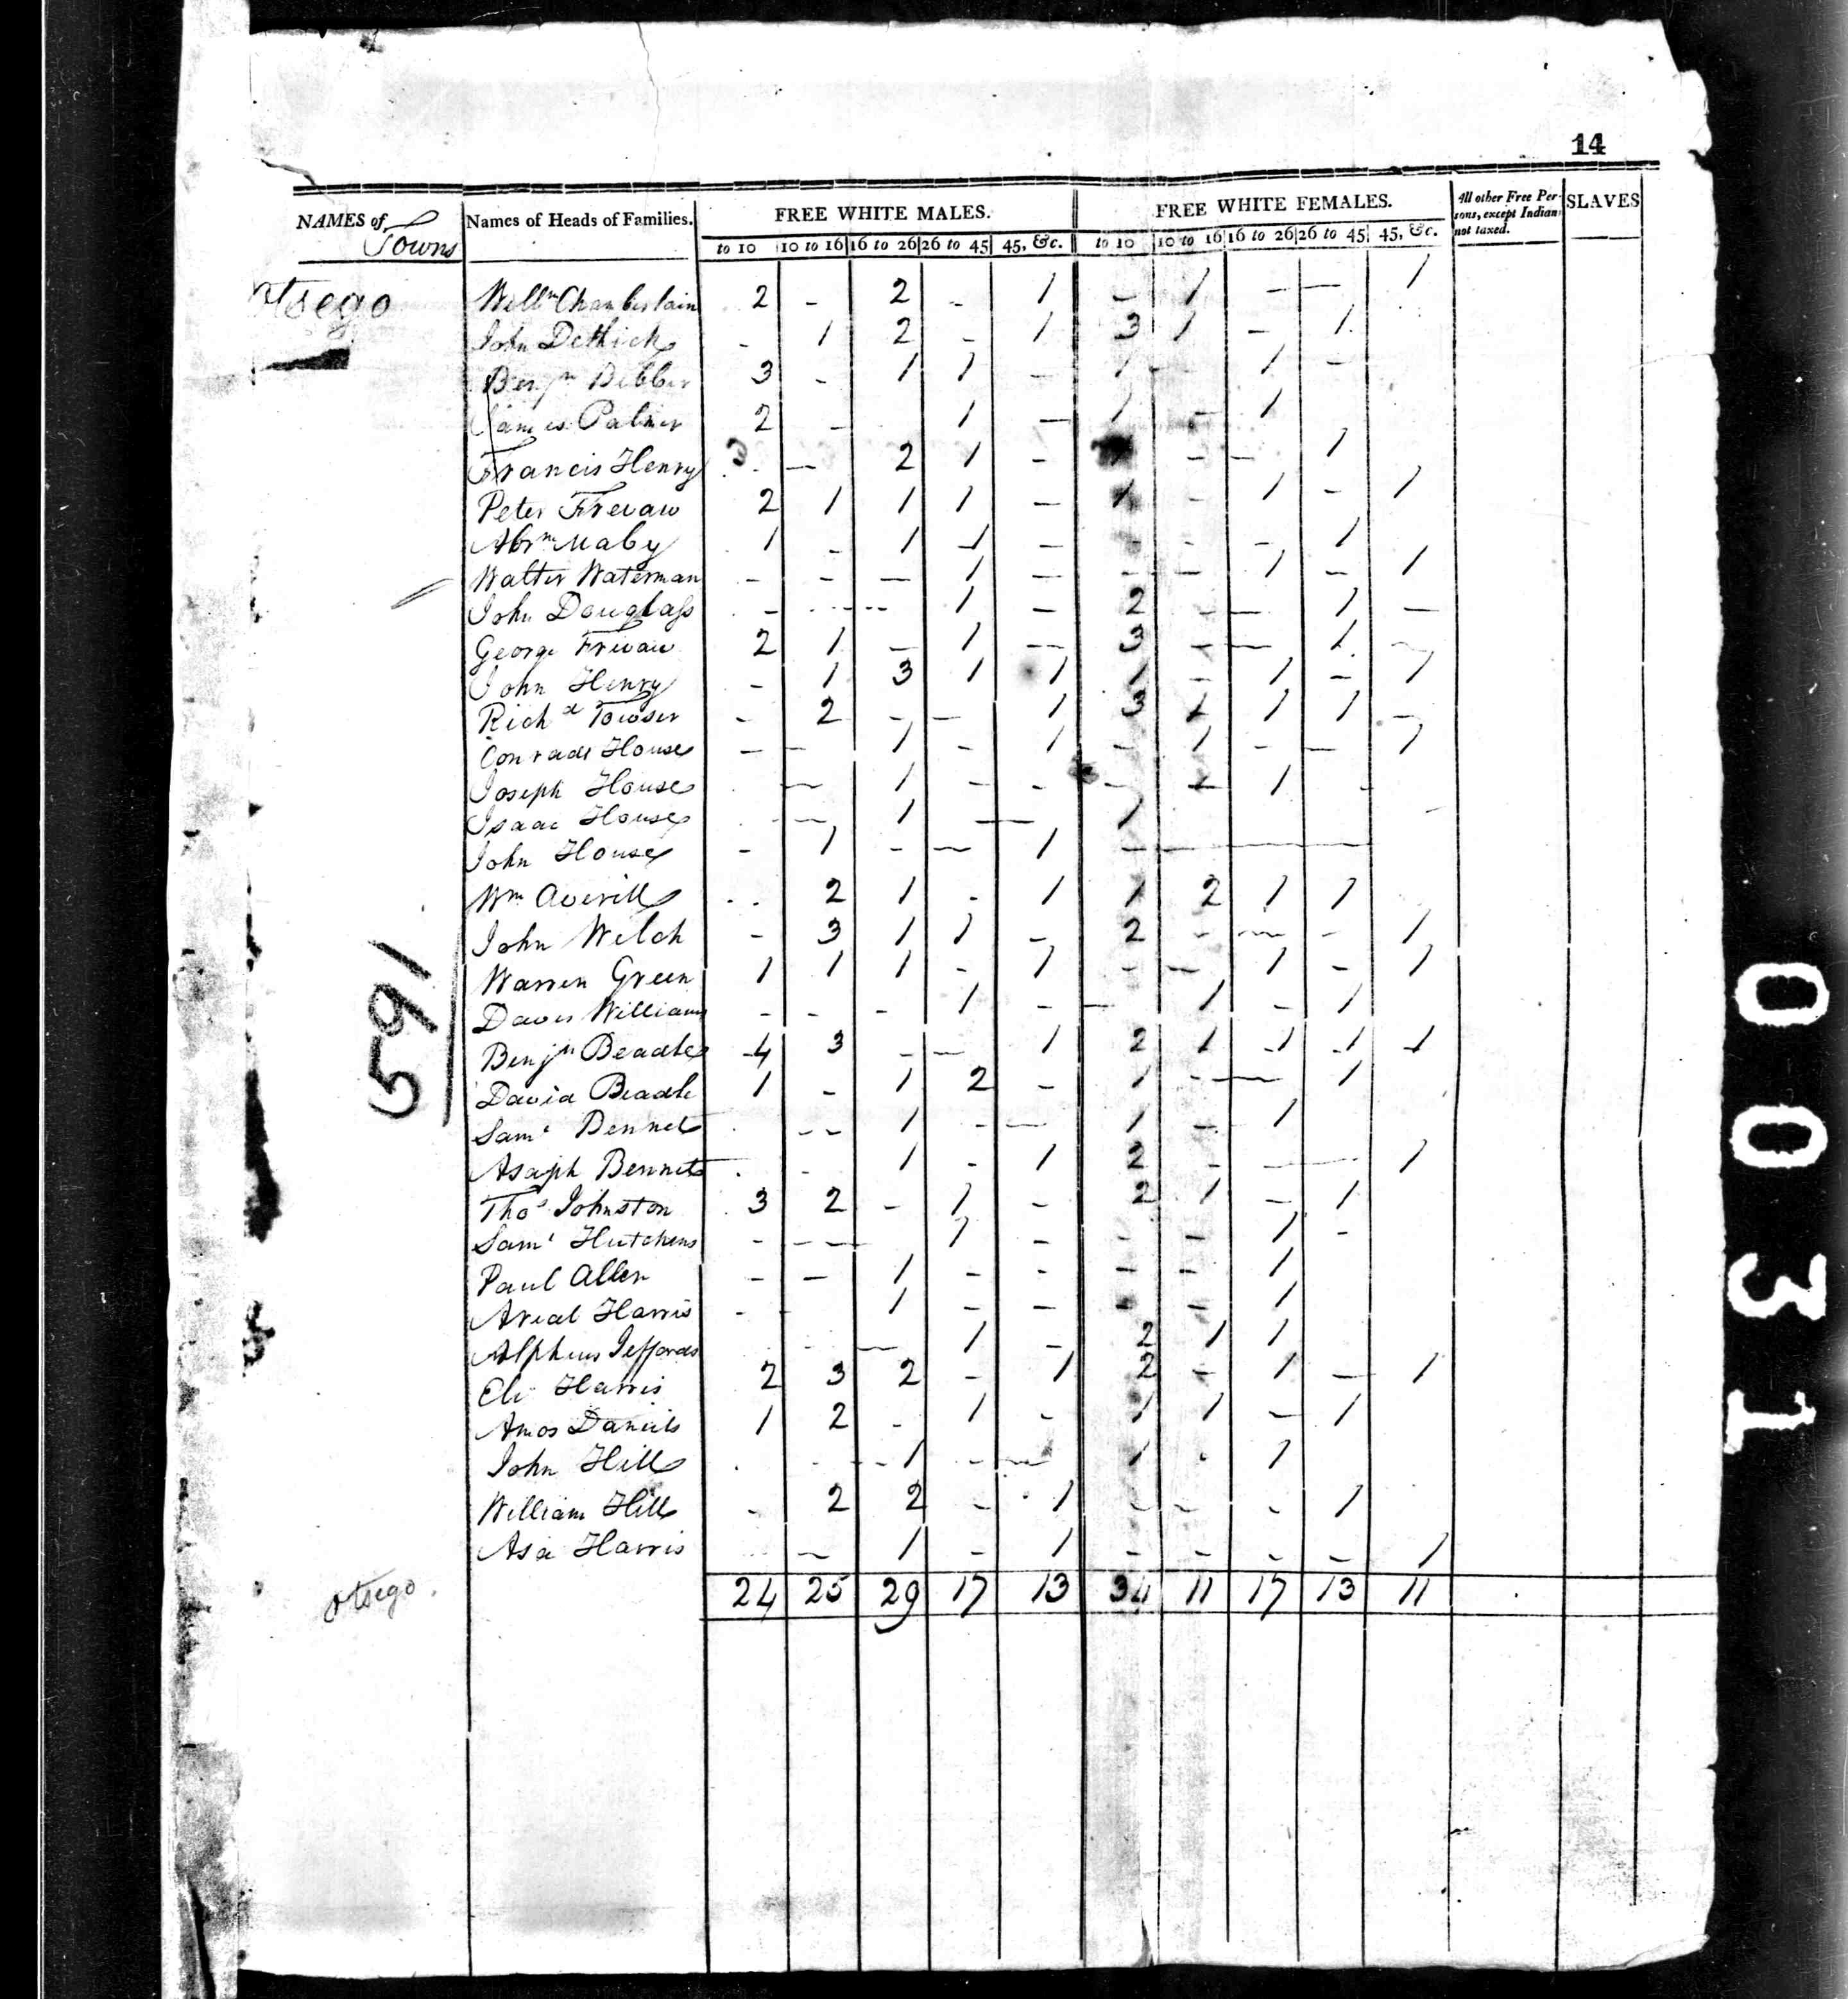 14
NAMES of Towns Names of Heads of Families. FREE WHITE MALES. FREE WHITE FEMALES. All other Free Persons, except Indians not taxed. SLAVES
to 10 10 to 16 16 to 26 26 to 45 45, &c. to 10 10 to 16 16 to 26 26 to 45 45, &c.
Otsego Willm Chamberlain 2 - 2 - 1 - 1 - - 1
John Dethick - 1 2 - 1 3 1 - 1
Benjn Bibber 3 - 1 1 - 1 - 1 -
James Palmer 2 - 1 - 1 - 1
Francis Henry 3 - 2 1 - - - 1
Peter Frevaw 2 1 1 1 - 1 - 1 - 1
Abrm Maby 1 - 1 1 - - - - 1
Walter Waterman - - - 1 - - - 1 - 1
John Douglass - - - 1 - 2 - - 1 -
George Frivaw 2 1 - 1 - 3 - - 1 -
John Henry - 1 3 1 1 1 - 1 - 1
Richd Towser - 2 - - 1 3 1 1 1 -
Conradt House - - 1 - 1 - 1 - - 1
Joseph House - 1 - - - 1 1
Isaac House - - 1 - 1
John House - 1 - - 1 -
Wm Averill - - 2 1 - 1 1 2 1 1
John Welch - 3 1 1 - 2 - - - 1
Warren Green 1 1 1 - 1 - - 1 - 1
Davis Williams - - - 1 - - 1 - 1
Benjn Beadle 4 3 - - 1 2 1 1 1 1
David Beadle 1 - 1 2 - 1 - 1
Saml Bennet - - 1 - - 1 - 1
Asaph Bennet - - 1 - 1 2 - - 1
Thos Johnston 3 2 - 1 - 2 1 - 1
Saml Hutchens - - - 1 - - - 1 -
Paul Allen - - 1 - - - - 1
Areal Harris - 1 - - - - 1
Alpheus Jeffords - 1 - 2 1 1
Eli Harris 2 3 2 - 1 2 - 1 - 1
Amos Daniels 1 2 - 1 - 1 1 - 1
John Hill - - - 1 - - 1 - 1
William Hill - 2 2 - 1 - - - 1
Asa Harris - - 1 - 1 - - - - 1
otsego. 24 25 29 17 13 34 11 17 13 11
591
0031